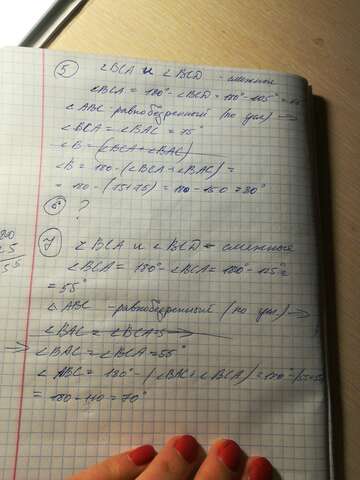 5) ∠BCA и ∠BCD - смежные
∠BCA = 180°-∠BCD = 180°-105° = 75
∠ABC - равнобедренный (по усл) →
∠BCA = ∠BAC = 75°
∠B = (∠BCA+∠BAC)
∠B = 180-(∠BCA+∠BAC) =
= 180-(75+75) = 180-150 = 30°
6) ?
7) ∠BCA и ∠BCD - смежные
∠BCA = 180°-∠BCA = 180°-125° =
= 55°
△ABC - равнобедренный (по усл) →
∠BAC = ∠BCA = 55°
∠ABC = 180°-(∠BAC+∠BCA) = 180°-(55+55)
= 180-110 = 70°